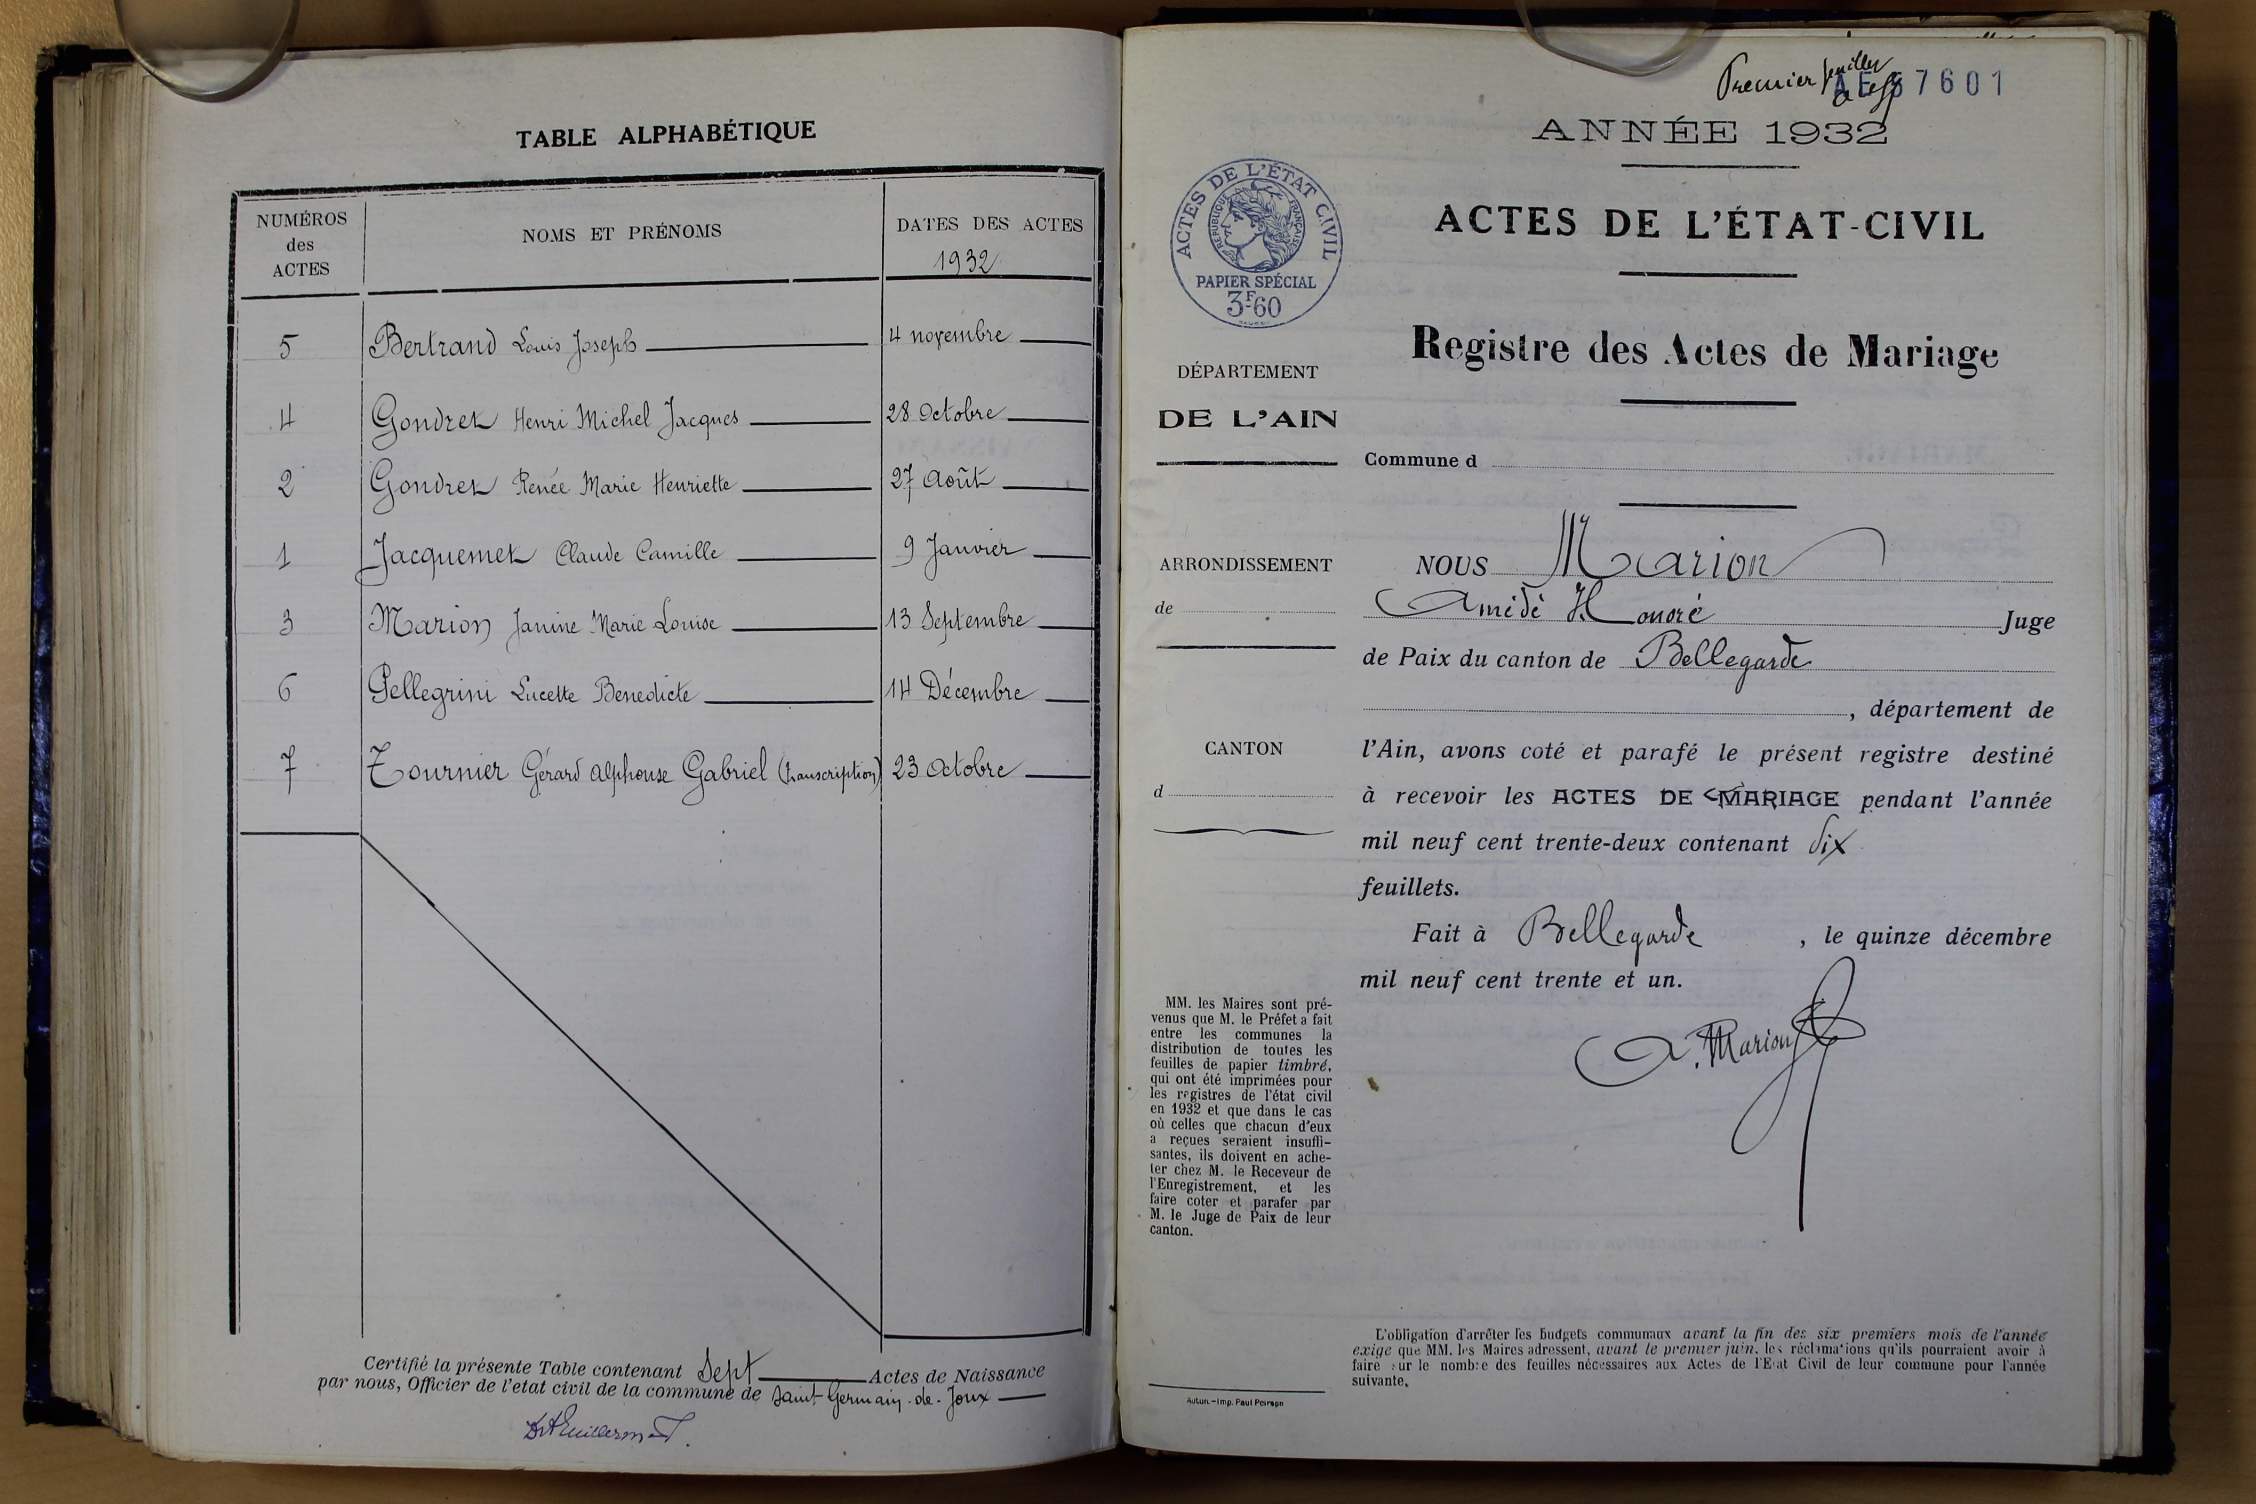 TABLE ALPHABÉTIQUE
NUMÉROS des ACTES
NOMS ET PRÉNOMS
DATES DES ACTES
1932
5 Bertrand Louis Joseph 4 novembre
4 Gondret Henri Michel Jacques 28 Octobre
2 Gondret Renée Marie Henriette 27 Août
1 Jacquemet Claude Camille 9 Janvier
3 Marion Janine Marie Louise 13 Septembre
6 Pellegrini Lucette Benedicte 14 Décembre
7 Tournier Gérard Alphonse Gabriel (transcription) 23 Octobre
Certifié la présente Table contenant Sept Actes de Naissance
par nous, Officier de l'etat civil de la commune de Saint-Germain-de-Joux
Premier feuillet
7601
ANNÉE 1932
ACTES DE L'ÉTAT CIVIL
RÉPUBLIQUE FRANÇAISE
PAPIER SPÉCIAL
3F60
ACTES DE L'ÉTAT-CIVIL
Registre des Actes de Mariage
DÉPARTEMENT
DE L'AIN
Commune d
ARRONDISSEMENT
de
CANTON
d
NOUS Marion
Amédé Honoré Juge
de Paix du canton de Bellegarde
, département de
l'Ain, avons coté et parafé le présent registre destiné
à recevoir les ACTES DE MARIAGE pendant l'année
mil neuf cent trente-deux contenant Six
feuillets.
Fait à Bellegarde, le quinze décembre
mil neuf cent trente et un.
A. Marion
MM. les Maires sont pré-
venus que M. le Préfet a fait
entre les communes la
distribution de toutes les
feuilles de papier timbré,
qui ont été imprimées pour
les registres de l'état civil
en 1932 et que dans le cas
où celles que chacun d'eux
a reçues seraient insuffi-
santes, ils doivent en ache-
ter chez M. le Receveur de
l'Enregistrement, et les
faire coter et parafer par
M. le Juge de Paix de leur
canton.
L'obligation d'arrêter les budgets communaux avant la fin des six premiers mois de l'année
exige que MM. les Maires adressent, avant le premier juin, les réclamations qu'ils pourraient avoir à
faire sur le nombre des feuilles nécessaires aux Actes de l'Etat Civil de leur commune pour l'année
suivante.
Autun. - Imp. Paul